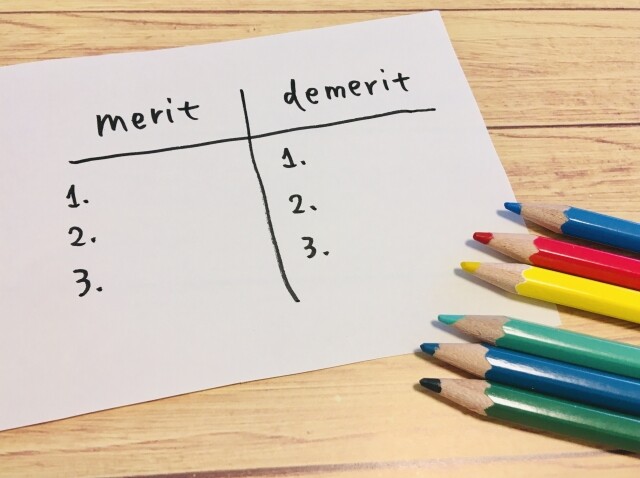 merit
demerit
1.
2.
3.
1.
2.
3.